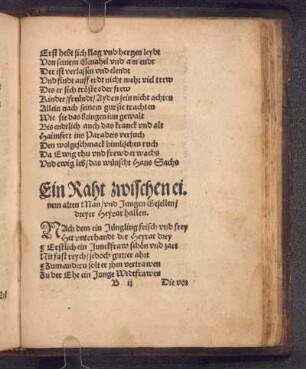 Erst hebt sich klag vnd hertzen leydt
Von seinem Gmahel vnd am endt
Der ist verlassen vnd elendt
Vnd findt auff erdt nicht mehr viel trew
Des er sich tröste oder frew
Kinder/freündt/Ayden sein nicht achten
Allein nach seinem gut sie trachten
Wie sie das bringen inn gewalt
Bis endtlich auch das kranck vnd alt
Heimfert ins Paradeis
Den wolgeschmack himlischen ruch
Da Ewig rhu vnd frewd erwachs
Vnd ewig leb/das wünscht Hans Sachs
Ein Raht zwischen ei-
nem alten Man/vnd Jungen Gesellen/
dreyer Heyrat halben.
NAch dem ein Jüngling frisch vnd frey
Het vnterhandt der Heyrat drey
Erstlich ein Junckfraw schön vnd zart
Nit fast reych/jedoch gutter ahrt
Zum andern solt er jhm vertrawen
Zu der Ehe ein Junge Witfrawen
B ij
Die vor